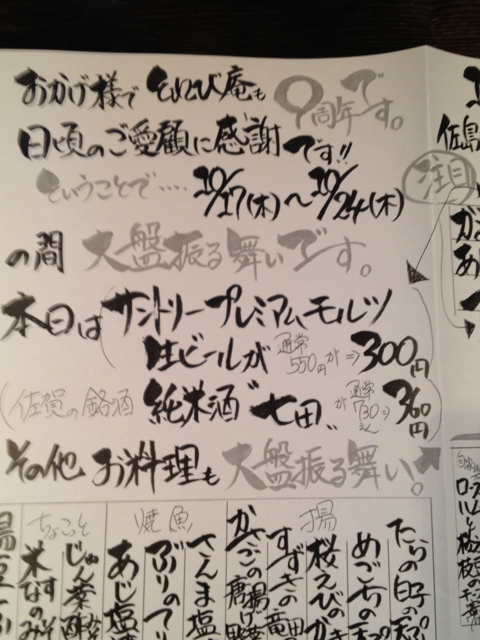 おかげ様で といとい庵も 9周年です。
日頃のご愛顧に感謝です!!
ということで‥‥ 10/17(木)〜10/24(木)
の間 大盤振る舞いです。
本日は サントリープレミアムモルツ
生ビールが 通常550円が⇒300円
(佐賀の銘酒 純米酒"七田" 通常730円が⇒360円)
その他 お料理も 大盤振る舞い。
注目
佐島
揚
たらの白子の天
めごちの天
桜えびのかき
すずきの竜田
かさごの唐揚げ
焼魚
さんま塩
ぶりのて
あじ塩
ちょこっと
じゅん菜酢
米なすのみそ